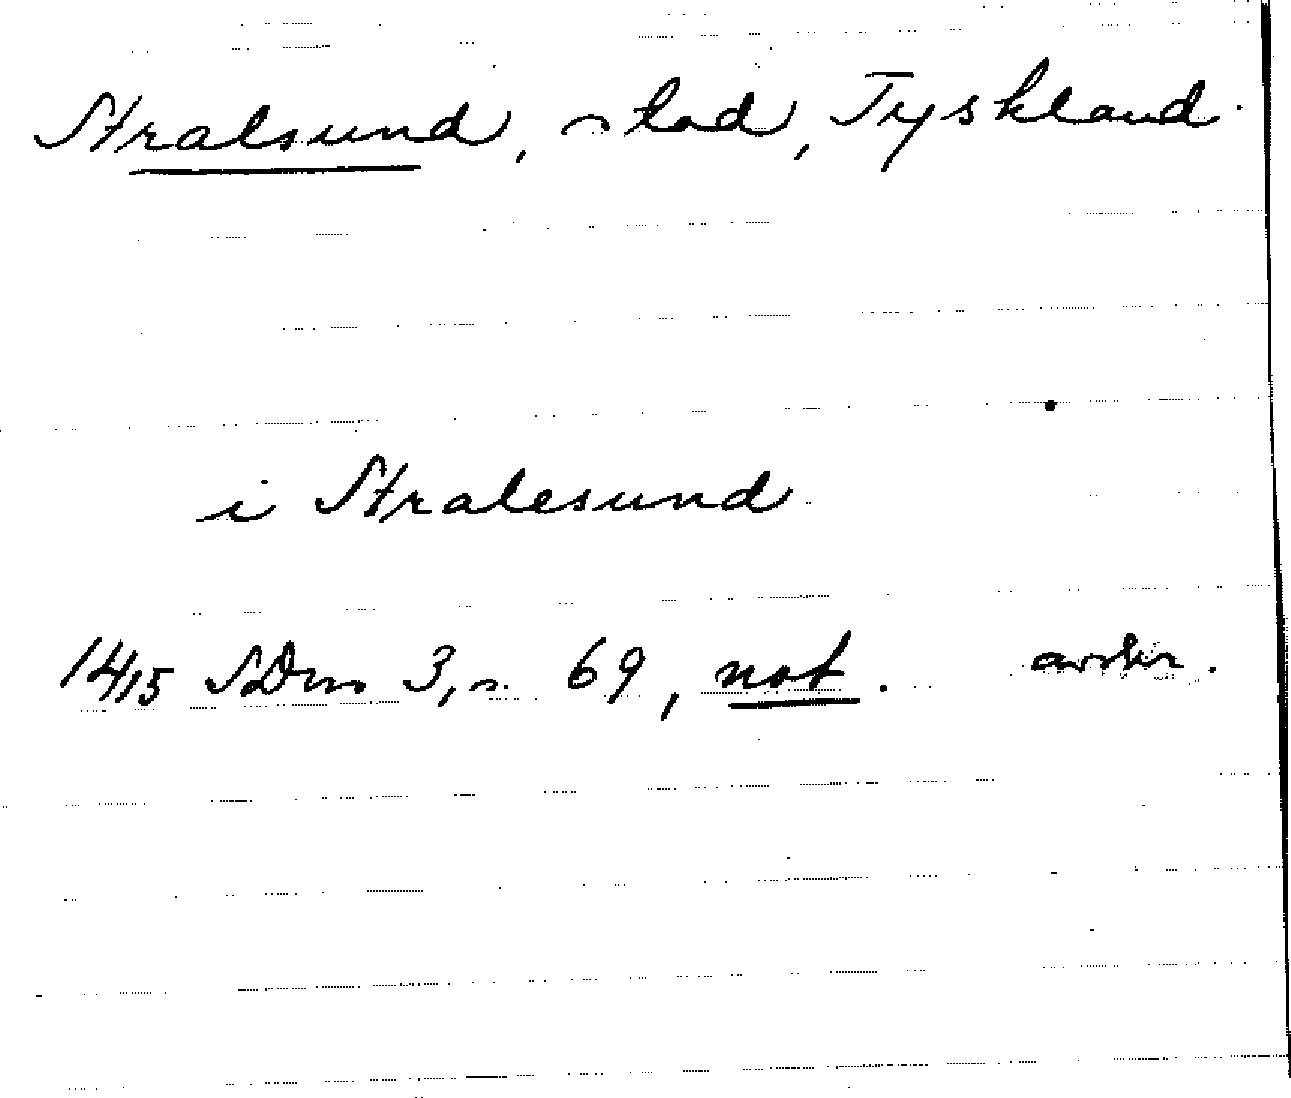 Stralsund, stad, Tyskland.
i Stralesund
1415 SDns 3, s. 69, not. avskr.